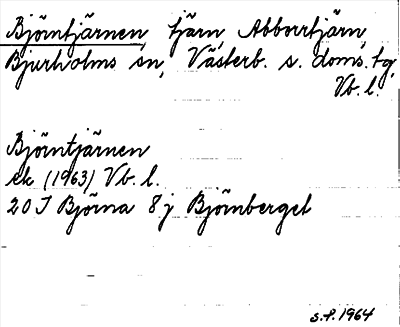 Björntjärnen, tjärn, Abborrtjärn,
Bjurholms sn, Västerb. s. doms. tg,
Vb. l.
Björntjärnen
ek (1963) Vb. l.
20 J Björna 8 j Björnberget
S.P. 1964